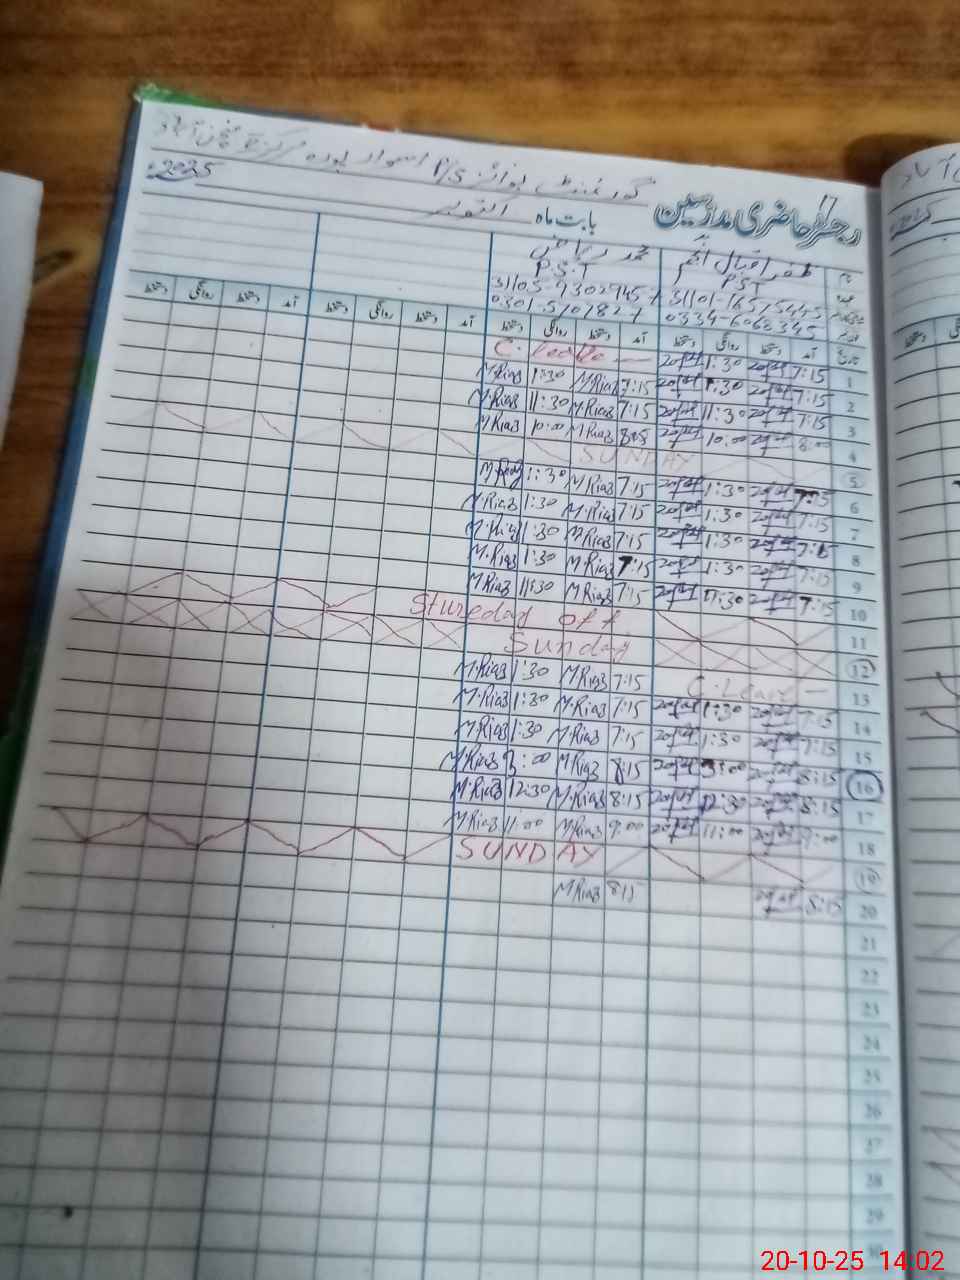 گورنمنٹ بوائز P/S اسوار پورہ مرکز
رجسٹر حاضری مدرسین
17
بابت ماہ اکتوبر 2025
ظفر اقبال انجم محمد ریاض
PST P.S.T
0334-6068345
تاریخ آمد دستخط روانگی دستخط آمد دستخط روانگی دستخط آمد دستخط روانگی دستخط آمد دستخط روانگی دستخط
1 7:15 1:30 C. Leave
2 7:15 1:30 7:15 M.Riaz 1:30 M.Riaz
3 7:15 11:30 7:15 M.Riaz 11:30 M.Riaz
4 8:00 10:00 M.Riaz 10:00 M.Riaz
5 SUNDAY
6 7:15 1:30 7:15 M.Riaz 1:30 M.Riaz
7 7:15 1:30 7:15 M.Riaz 1:30 M.Riaz
8 7:15 1:30 7:15 M.Riaz 1:30 M.Riaz
9 7:15 1:30 7:15 M.Riaz 1:30 M.Riaz
10 7:15 11:30 7:15 M.Riaz 11:30 M.Riaz
11 Stureday off
12 Sunday
13 C. Leave 7:15 M.Riaz 1:30 M.Riaz
14 7:15 1:30 7:15 M.Riaz 1:30 M.Riaz
15 7:15 1:30 7:15 M.Riaz 1:30 M.Riaz
16 8:15 3:00 8:15 M.Riaz 3:00 M.Riaz
17 8:15 12:30 8:15 M.Riaz 12:30 M.Riaz
18 9:00 11:00 9:00 M.Riaz 11:00 M.Riaz
19 SUNDAY
20 8:15 8:15 M.Riaz
21
22
23
24
25
26
27
28
29
20-10-25 14:02